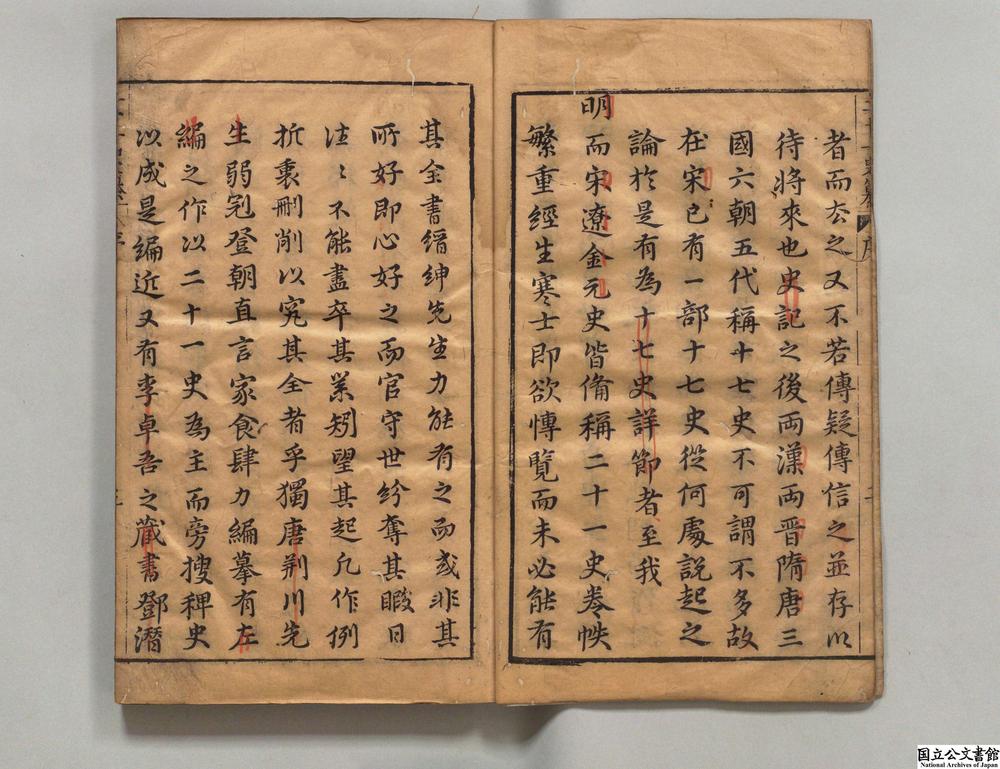 者而去之又不若傳疑傳信之並存以
待將來也史記之後两漢两晋隋唐三
國六朝五代稱十七史不可謂不多故
在宋已有一部十七史從何處說起之
論於是有為十七史詳節者至我
明而宋遼金元史皆俻稱二十一史卷帙
繁重經生寒士即欲愽覽而未必能有
其全書縉紳先生力能有之而或非其
所好即心好之而官守世紛奪其暇日
徃〻不能盡卒其業矧望其起凡作例
折衷刪削以究其全者乎獨唐荆川先
生弱冠登朝直言家食肆力編摹有左
編之作以二十一史為主而旁搜稗史
以成是編近又有李卓吾之藏書鄧潛
国立公文書館
National Archives of Japan